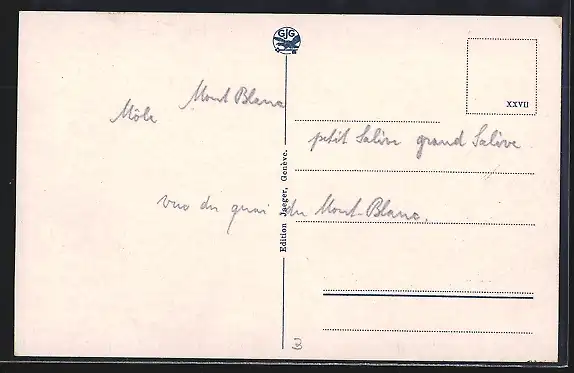 GJG
XXVII
Mont Blanc
Môle
petit Salève grand Salève
vue du quai du Mont-Blanc.
Edition Jaeger, Genève.
3